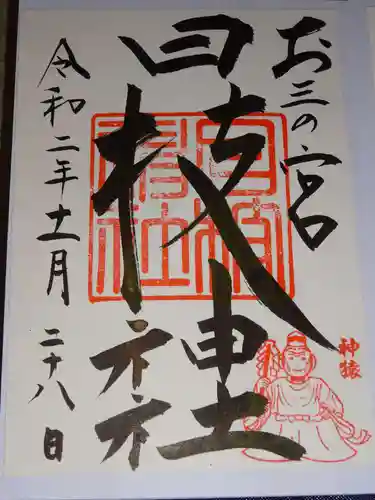 お三の宮
日枝神社
令和二年十一月二十八日
日枝神社
神猿